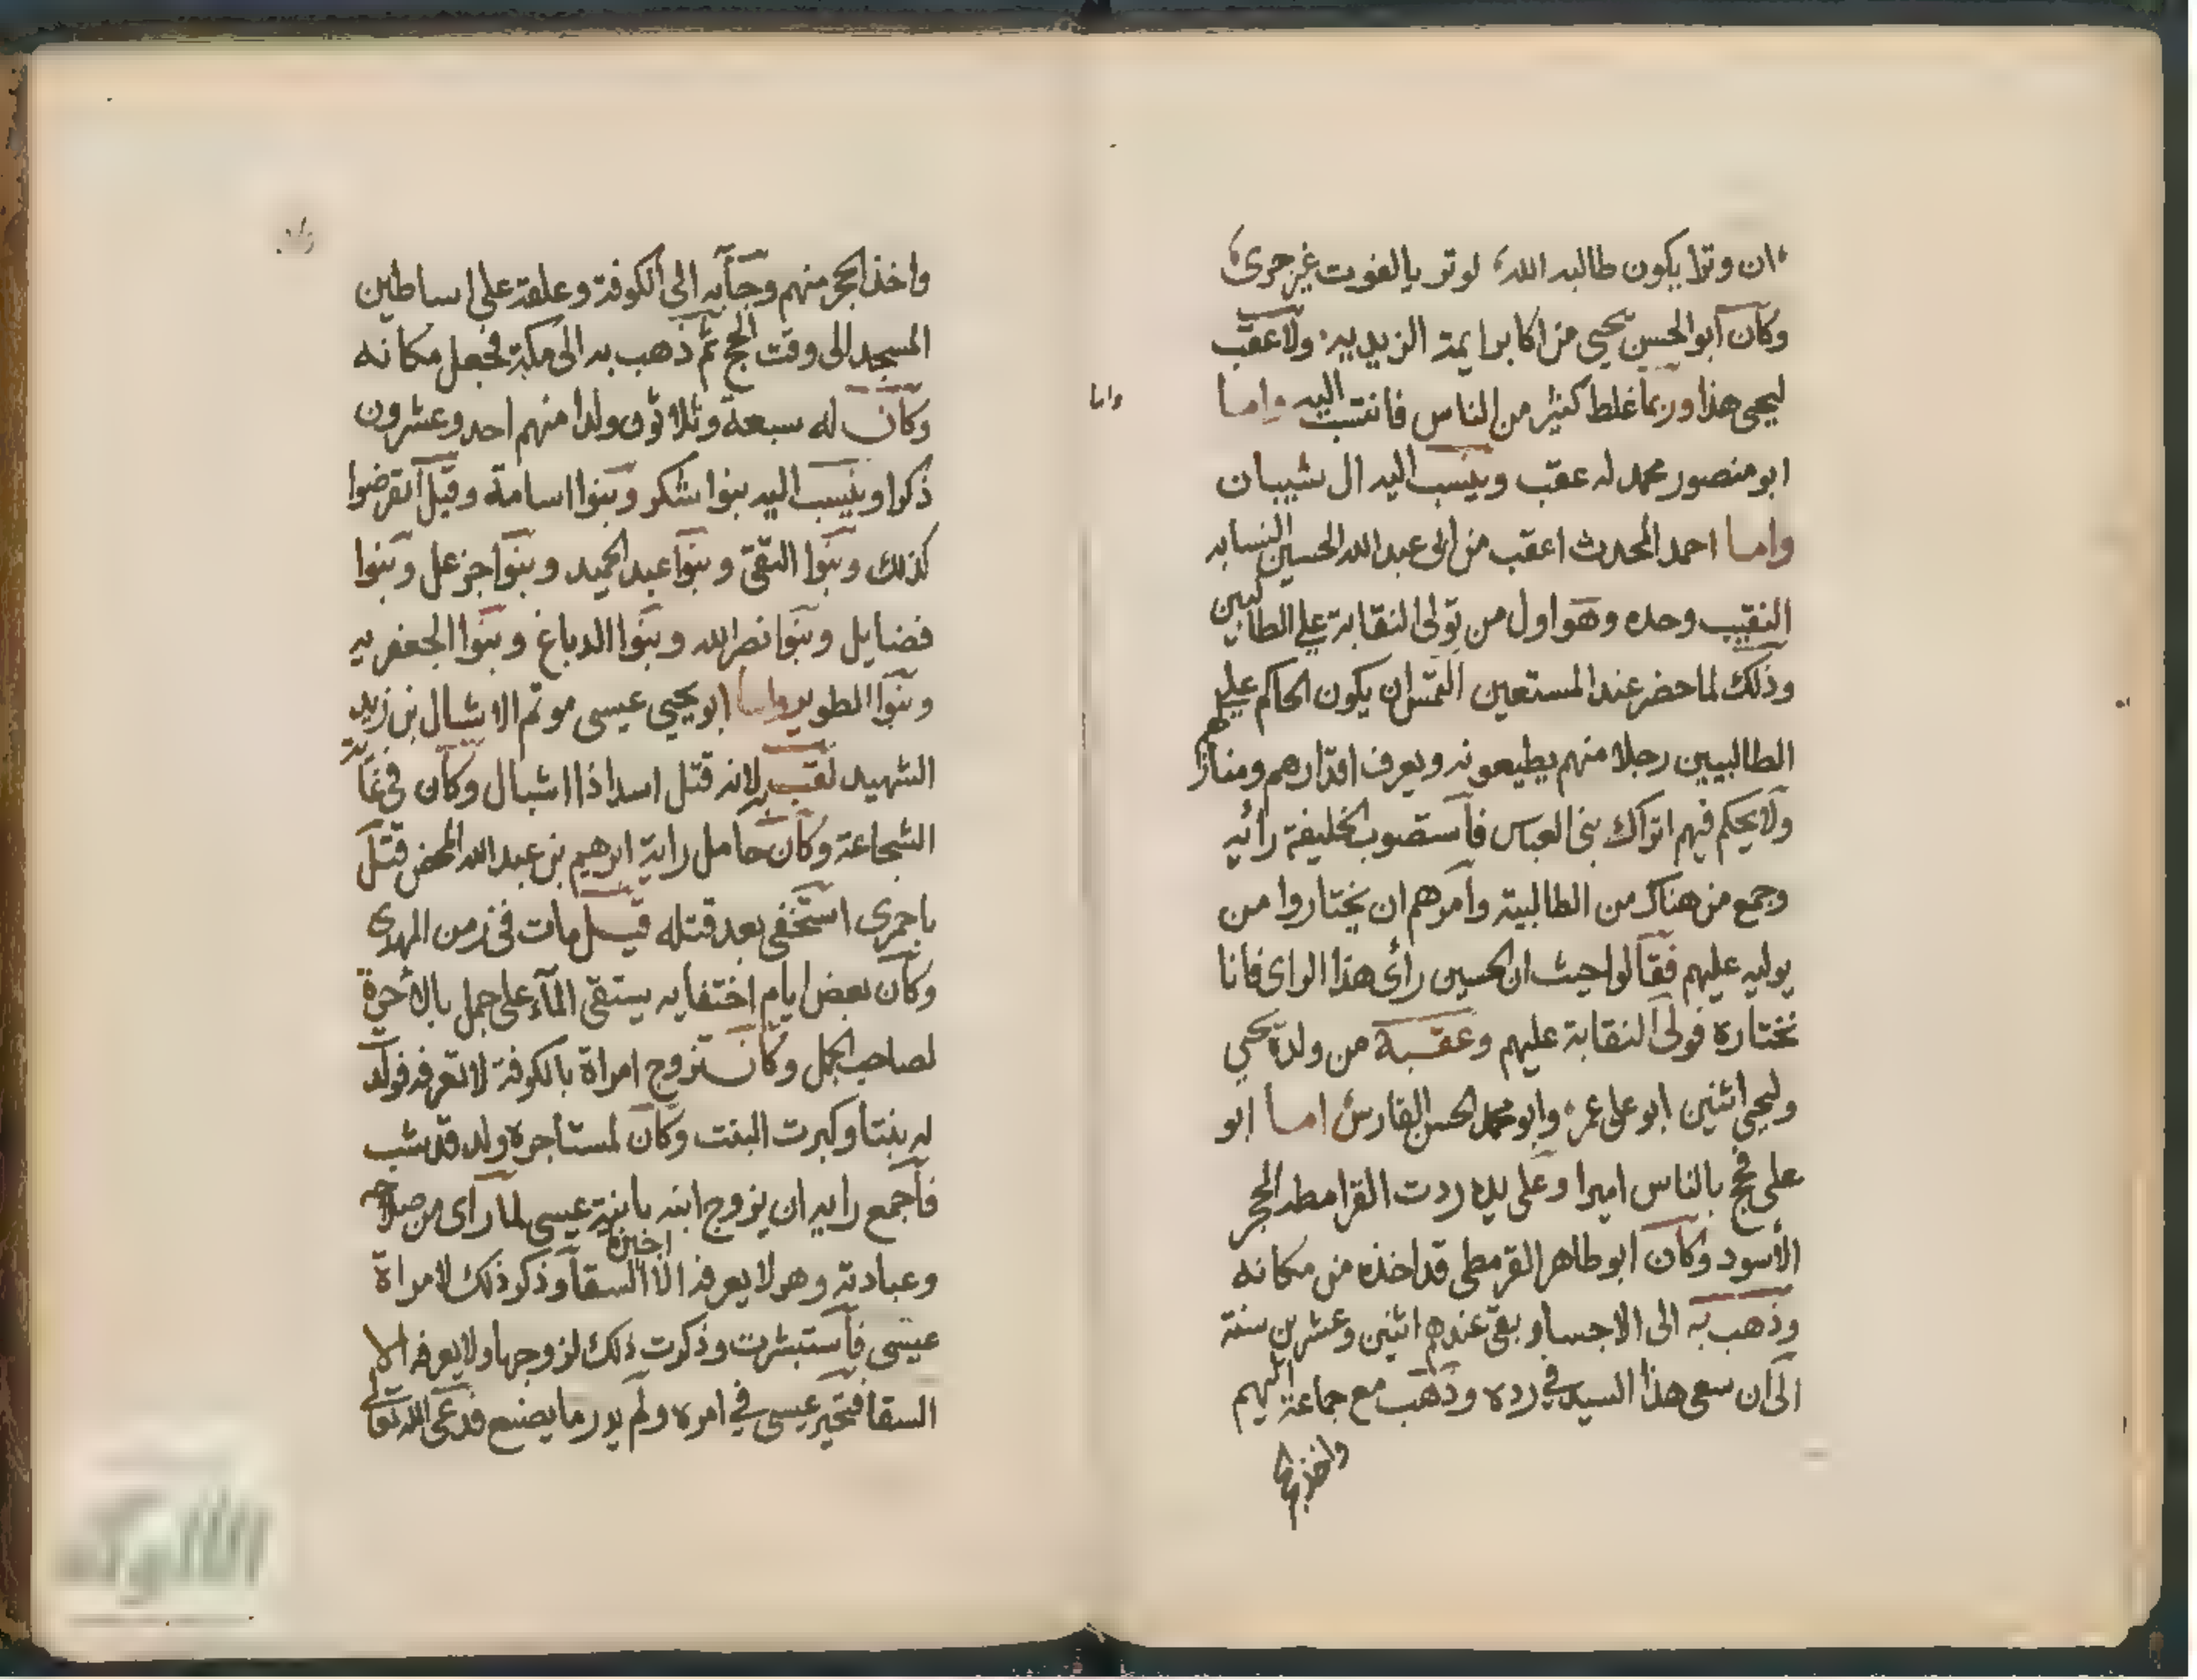 ان وترا يكون طالبه الله لوتر بالفوت غير حرى
وكان ابو الحسن يحيى من اكابر ايمة الزيديه ولا عقب
ليحيى هذا وربما غلط كثير من الناس فانتسب اليه واما
ابو منصور محمد له عقب وينسب اليه ال شيبان
واما احمد المحدث اعقب من ابى عبد الله الحسين النسابه
النقيب وحده وهو اول من تولى النقابة على الطالبين
وذلك لما حضر عند المستعين التمس ان يكون الحاكم على
الطالبيين رجلا منهم يطيعونه ويعرف اقدارهم ومنازلهم
ولا يحكم فيهم اتراك بنى العباس فاستصوب الخليفة رأيه
وجمع من هناك من الطالبية وامرهم ان يختاروا من
يوليه عليهم فقالوا حيث ان الحسين رأى هذا الراى فانا
نختاره فولى النقابة عليهم وعقبة من ولده يحيى
وليحيى اثنين ابو على عمر وابو محمد الحسن الفارس اما ابو
على فحج بالناس اميرا وعلى يده ردت القرامطه الحجر
الأسود وكان ابو طاهر القرمطى قد اخذه من مكانه
وذهب به الى الاحسا وبقى عندهم اثنين وعشرين سنة
الى ان سعى هذا السيد فى رده وذهب مع جماعة اليهم
واخذ
واما
واخذ الحجر منهم وجآء به الى الكوفة وعلقة على اساطين
المسجد الى وقت الحج ثم ذهب به الى مكة فجعل مكانه
وكان له سبعة وثلاثون ولدا منهم احد وعشرون
ذكرا وينسب اليه بنوا شكر وبنوا اسامة وقيل انقرضوا
كذلك وبنوا التقى وبنوا عبد الحميد وبنوا جزعل وبنوا
فضايل وبنوا نصر الله وبنوا الدباغ وبنوا الجعفريه
وبنوا الطوير واما ابو يحيى عيسى موتم الاشبال بن زيد
الشهيد لقب به لانه قتل اسدا ذا اشبال وكان فى غاية
الشجاعة وكان حامل راية ابرهيم بن عبد الله المحض قتل
باخمرى استخفى بعد قتله قيل مات فى زمن المهدى
وكان بعض ايام اختفايه يستقى المآء على جمل بالأجرة
لصاحب الجمل وكان تزوج امراة بالكوفة لا تعرفه فولد
له بنتا وكبرت البنت وكان لمستاجره ولد قد شب
فاجمع رايه ان يزوج ابنه بابنة عيسى لما رأى من صلاحه
وعبادته وهو لا يعرفه الا السقا وذكر ذلك لامراة
عيسى فاستبشرت وذكرت ذلك لزوجها ولا يعرفه الا
السقا فتحير عيسى فى امره ولم يدر ما يصنع فدعى الله تعالى
الألوكة